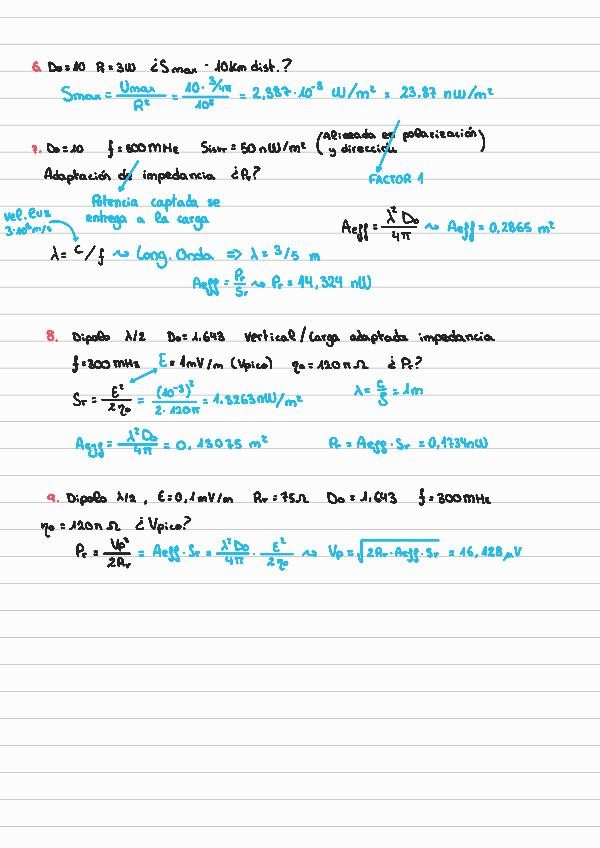 6. D₀=10 Pr=3W ¿Smax - 10km dist.?
Smax = Umax/R² = 10·3/4π/10⁸ = 2,387·10⁻⁸ W/m² = 23,87 nW/m²
7. D₀=10 f=500MHz Sinτr=50nW/m² (Alineada en polarización y dirección)
Adaptación de impedancia ¿Pr?
FACTOR 1
Potencia captada se
entrega a la carga
Vel. luz
3·10⁸m/s
Aeff = λ²D₀/4π ⇝ Aeff=0,2865 m²
λ= c/f ⇝ Long. Onda => λ = 3/5 m
Aeff= Pr/Sr ⇝ Pr=14,324 nW
8. Dipolo λ/2 D₀=1.643 vertical/carga adaptada impedancia
f=300MHz E=1mV/m (Vpico) η₀=120π Ω ¿Pr?
Sr = E²/2η₀ = (10⁻³)²/2·120π = 1.3263nW/m² λ= c/f = 1m
Aeff= λ²D₀/4π = 0,13075 m² Pr=Aeff·Sr=0,1734nW
9. Dipolo λ/2, E=0,1mV/m Rr=75Ω D₀=1,643 f=300MHz
η₀=120π Ω ¿Vpico?
Pr = Vp²/2Rr = Aeff·Sr = λ²D₀/4π · E²/2η₀ ⇝ Vp=√2Rr·Aeff·Sr = 16,128μV